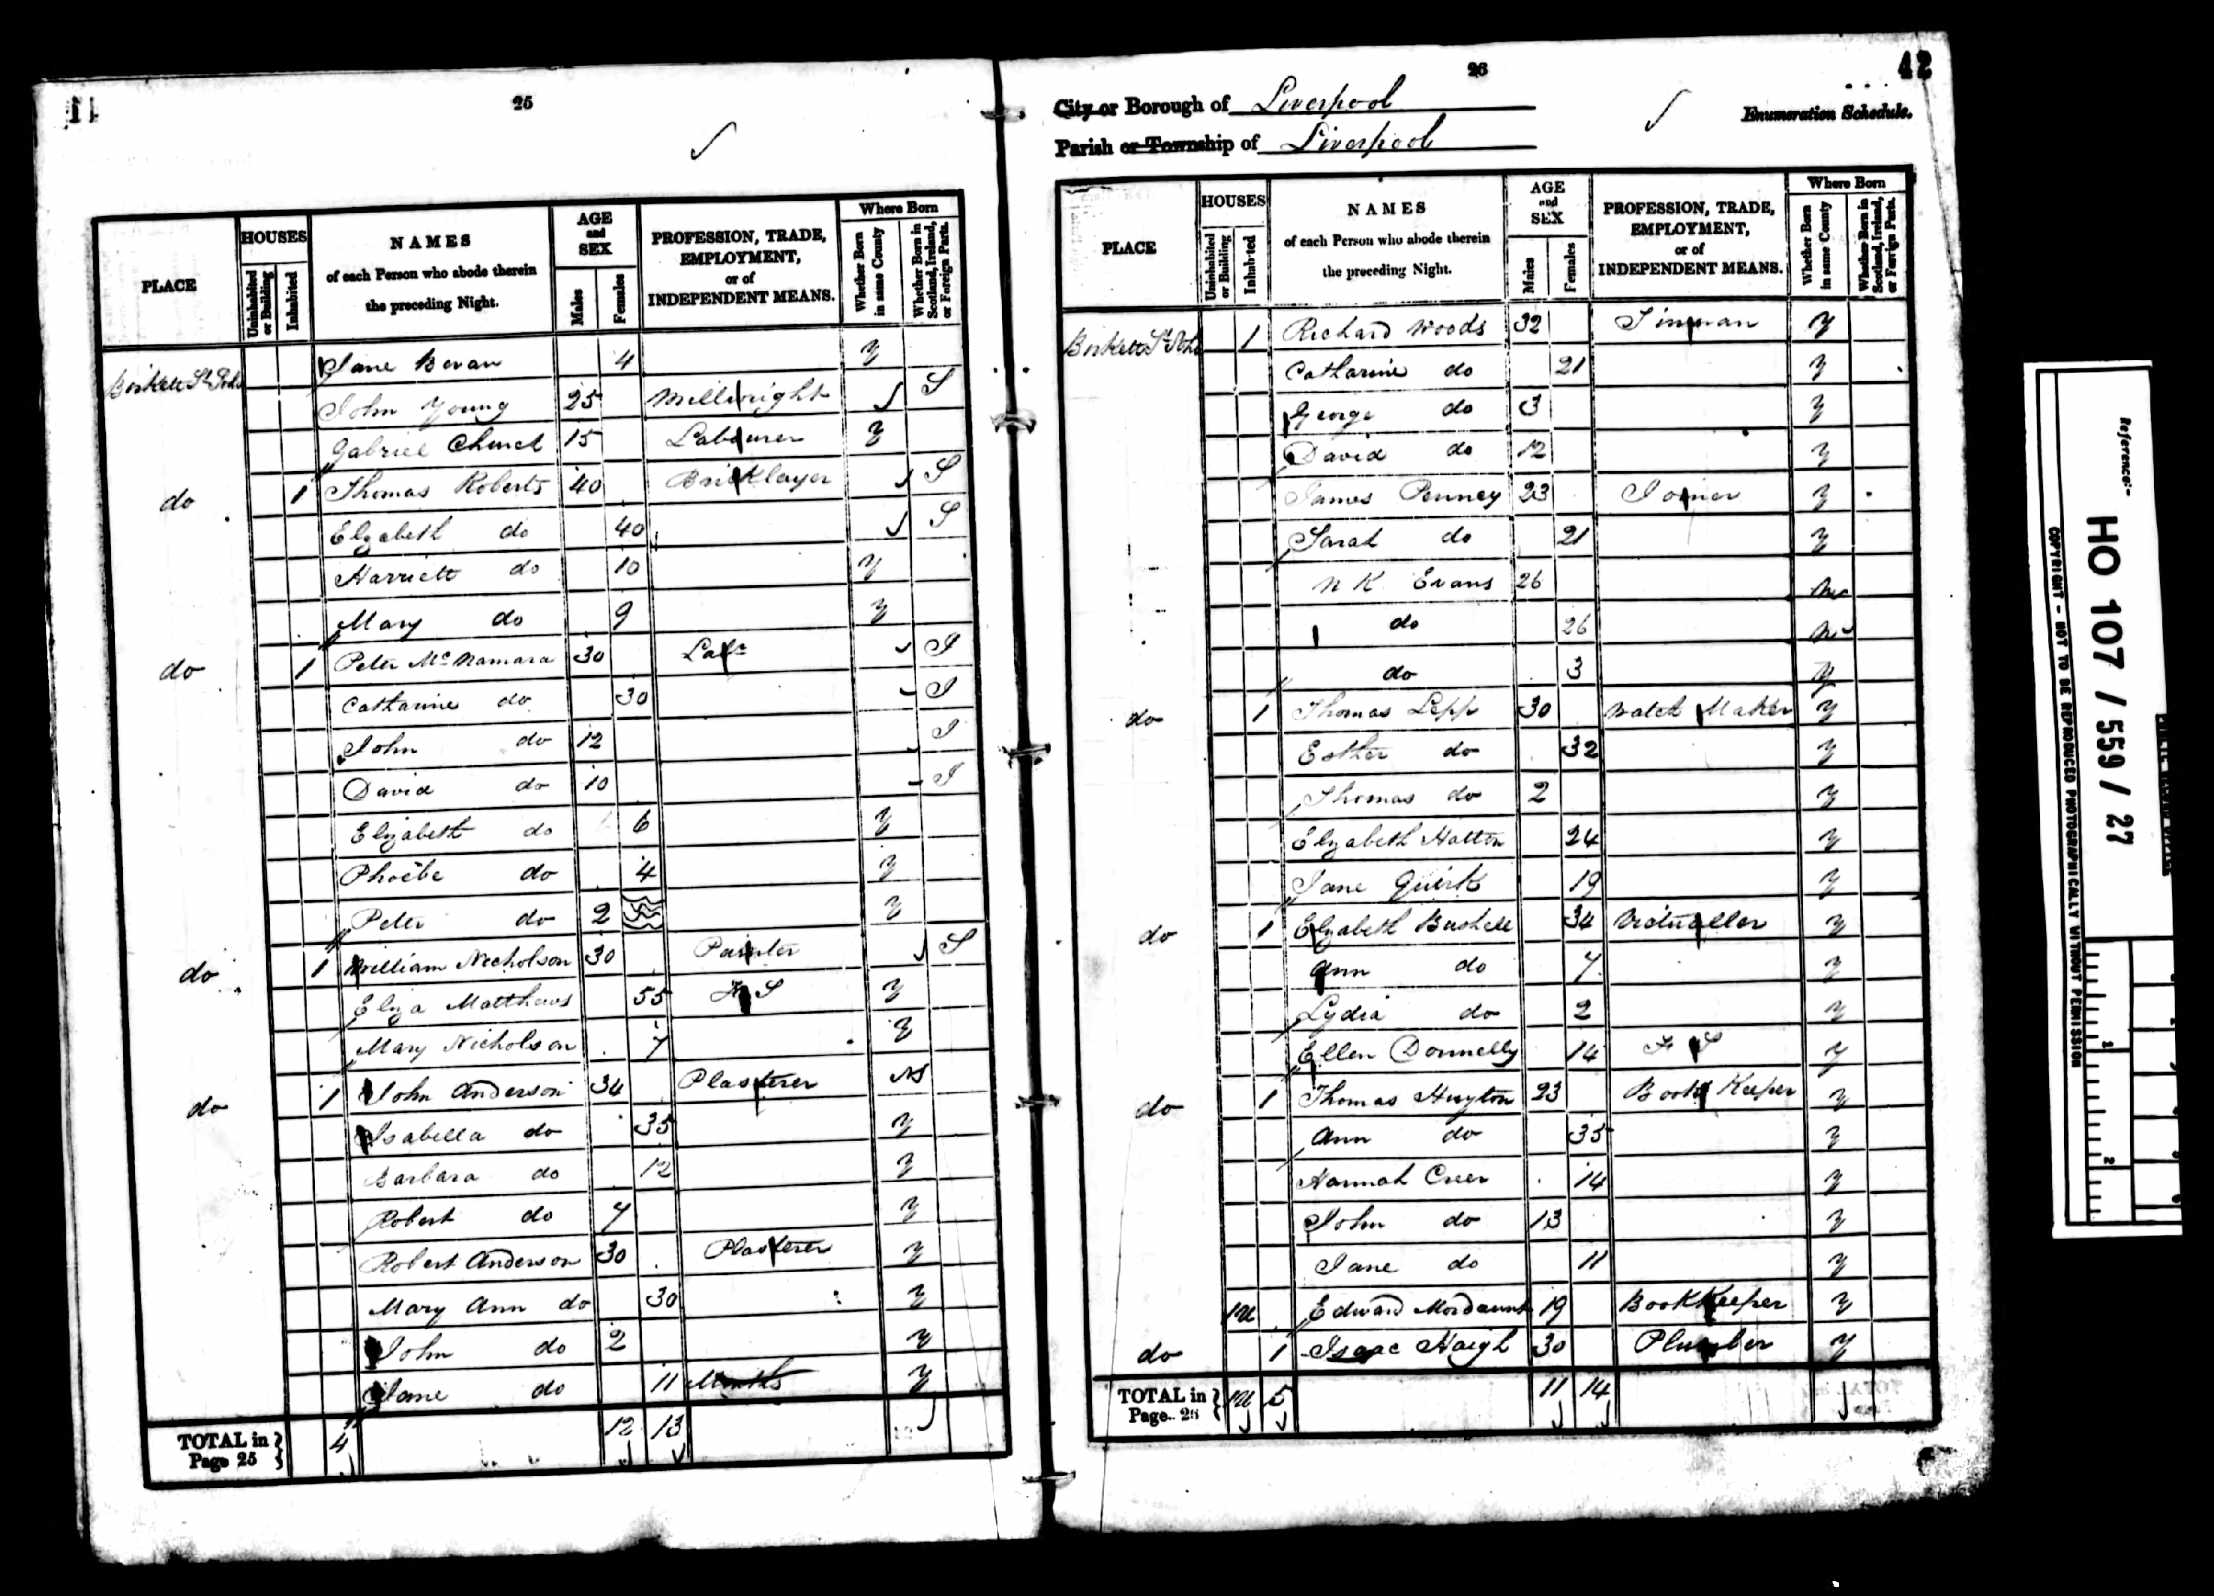 25
PLACE
HOUSES
Uninhabited or Building
Inhabited
NAMES
of each Person who abode therein
the preceding Night.
AGE
and
SEX
Males
Females
PROFESSION, TRADE,
EMPLOYMENT,
or of
INDEPENDENT MEANS.
Where Born
Whether Born in same County
Whether Born in Scotland, Ireland, or Foreign Parts.
Jane Bevan 4 Y
John Young 25 Millwright S
Gabriel Church 15 Labourer Y
do 1 Thomas Roberts 40 Bricklayer S
Elizabeth do 40 S
Harriett do 10 Y
Mary do 9 Y
do 1 Peter McNamara 30 Labr I
Catharine do 30 I
John do 12 I
David do 10 I
Elizabeth do 6 Y
Phoebe do 4 Y
Peter do 2 Y
do 1 William Nicholson 30 Painter S
Eliza Matthews 55 F S Y
Mary Nicholson 7 Y
do 1 John Anderson 34 Plasterer N
Isabella do 35 Y
Barbara do 12 Y
Robert do 7 Y
Robert Anderson 30 Plasterer Y
Mary Ann do 30 Y
John do 2 Y
Jane do 11 Months Y
TOTAL in Page 25 4 12 13
26
42
City or Borough of Liverpool
Enumeration Schedule.
Parish or Township of Liverpool
PLACE
HOUSES
Uninhabited or Building
Inhabited
NAMES
of each Person who abode therein
the preceding Night.
AGE
and
SEX
Males
Females
PROFESSION, TRADE,
EMPLOYMENT,
or of
INDEPENDENT MEANS.
Where Born
Whether Born in same County
Whether Born in Scotland, Ireland, or Foreign Parts.
1 Richard Woods 32 Tinman Y
Catharine do 21 Y
George do 3 Y
David do 12 Y
James Penney 23 Joiner Y
Sarah do 21 Y
N K Evans 26 N
do 26 N
do 3 Y
do 1 Thomas Lepp 30 Watch Maker Y
Esther do 32 Y
Thomas do 2 Y
Elizabeth Hatton 24 Y
Jane Quirk 19 Y
do 1 Elizabeth Bushell 34 Victualler Y
Ann do 7 Y
Lydia do 2 Y
Ellen Donnelly 14 F S Y
do 1 Thomas Huyton 23 Book Keeper Y
Ann do 35 Y
Hannah Creer 14 Y
John do 13 Y
Jane do 11 Y
1U Edward Mordaunt 19 Book Keeper Y
do 1 Isaac Haigh 30 Plumber Y
TOTAL in Page 26 1U 5 11 14
Reference:-
HO 107 / 559 / 27
COPYRIGHT - NOT TO BE REPRODUCED PHOTOGRAPHICALLY WITHOUT PERMISSION
1
2